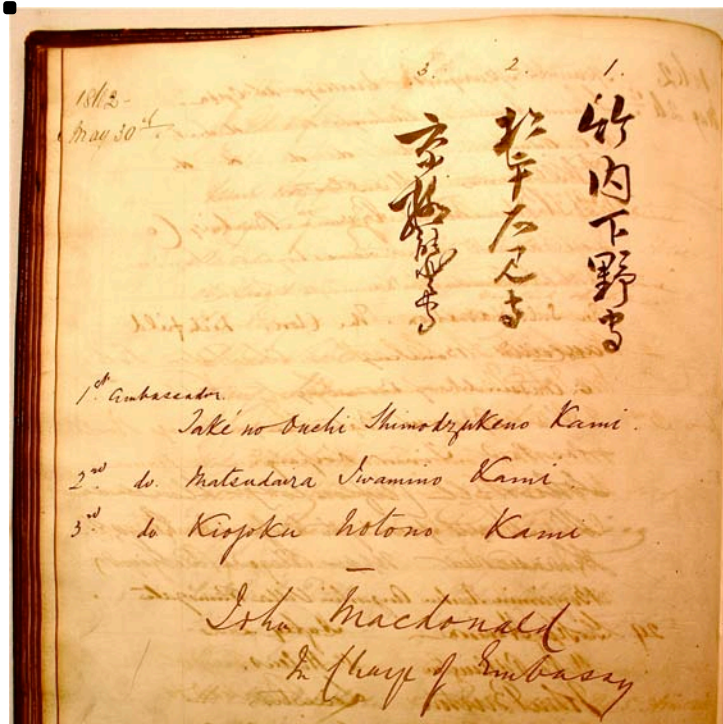 1862-
May 30th
1.
竹内下野守
2.
松平石見守
3.
京極能登守
1st Ambassador
Také no Ouchi Shimodzukeno Kami.
2nd do. Matsudaira Iwamino Kami
3rd do Kiogoku Notono Kami
John Macdonald
In Charge of Embassy